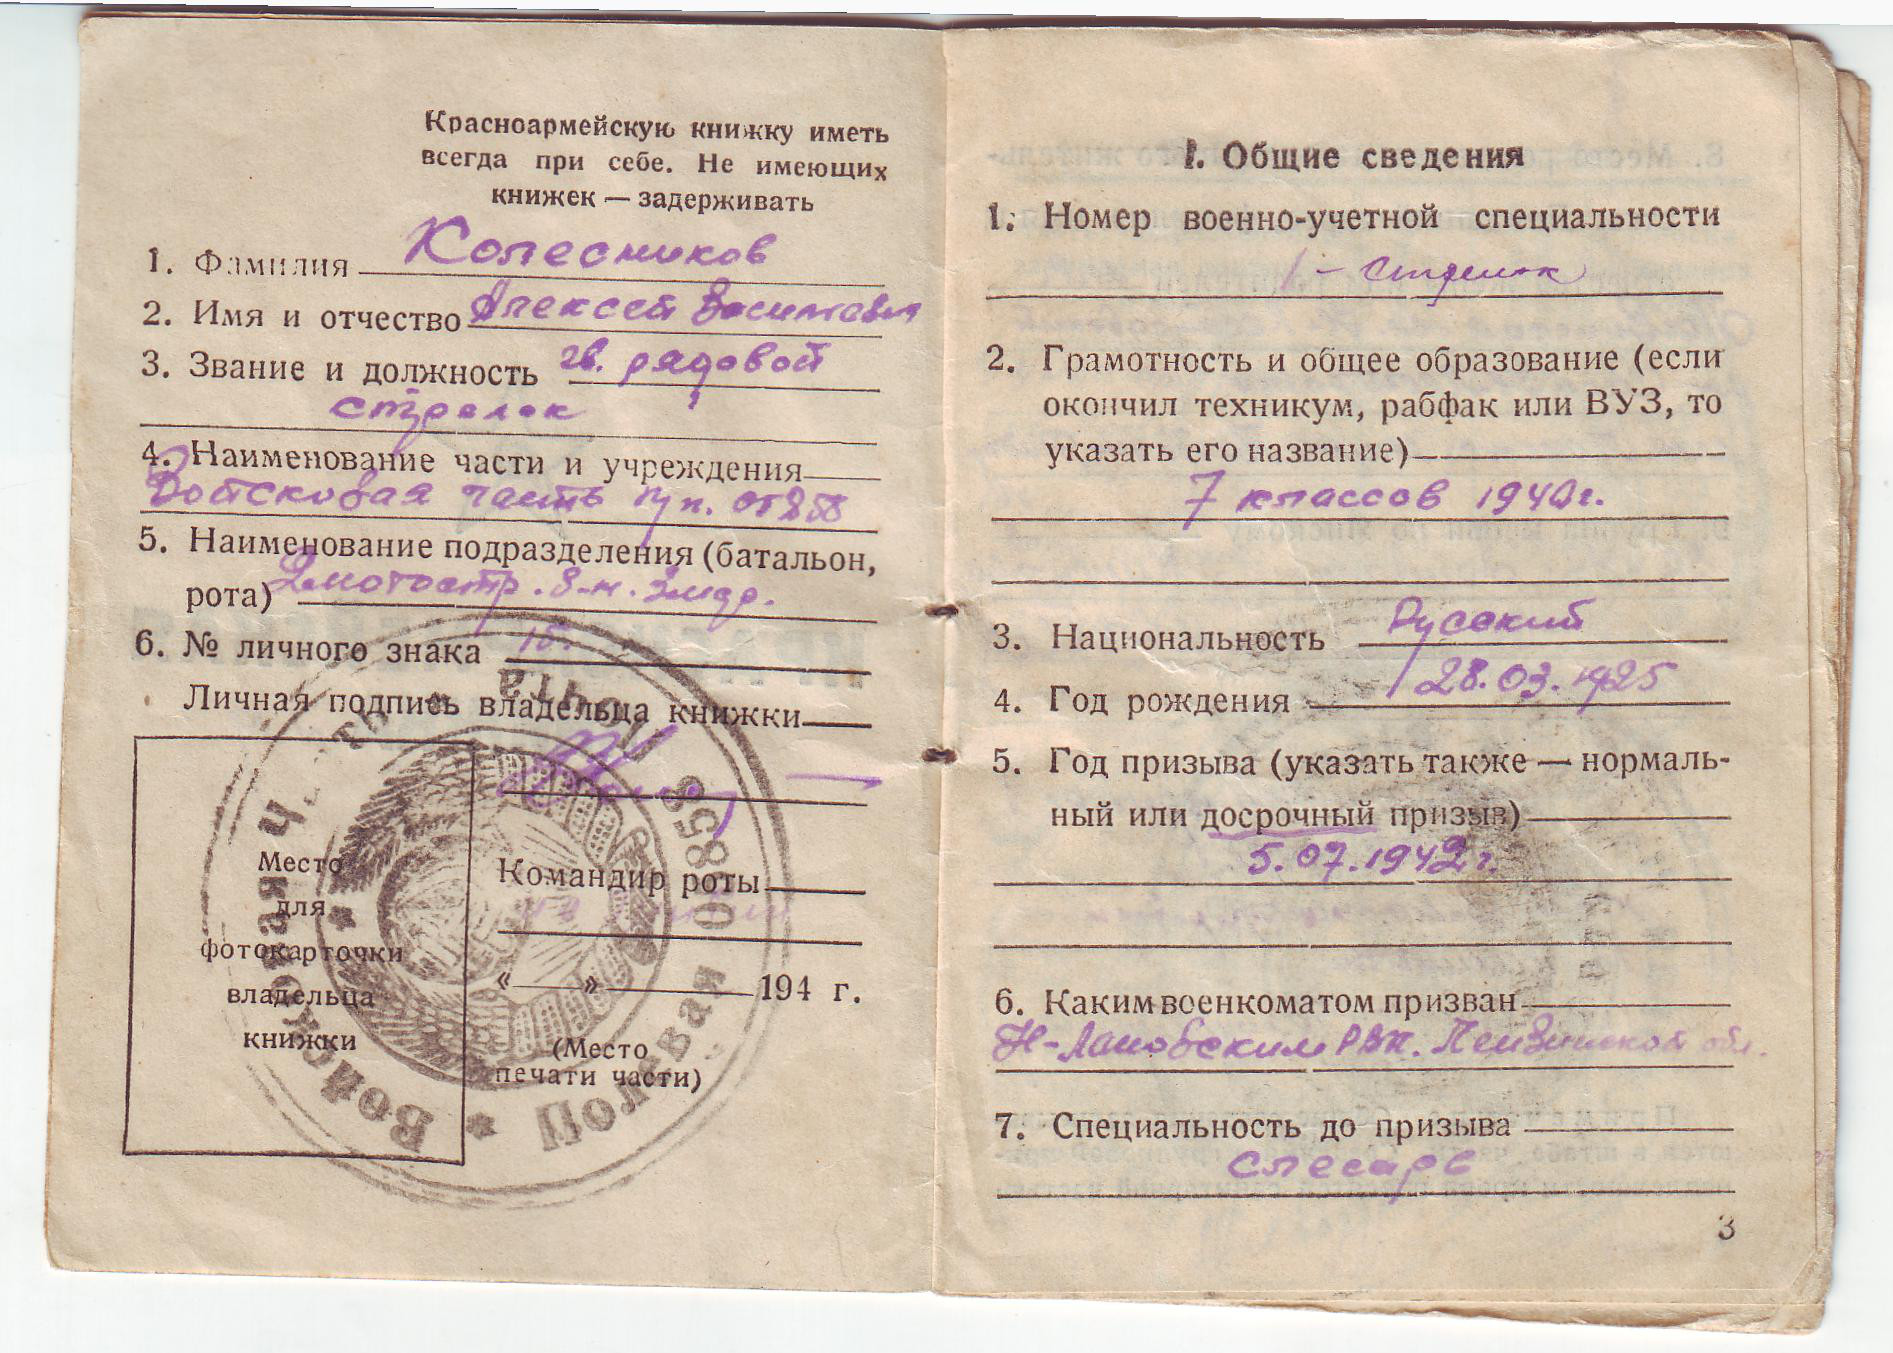 Красноармейскую книжку иметь
всегда при себе. Не имеющих
книжек — задерживать
1. Фамилия Колесников
2. Имя и отчество Алексей Васильевич
3. Звание и должность гв. рядовой
стрелок
4. Наименование части и учреждения
Войсковая часть п/п.
5. Наименование подразделения (батальон,
рота) 2 мотостр. б-н.
6. № личного знака
Личная подпись владельца книжки
Место
для
фотокарточки
владельца
книжки
Командир роты
« » 194 г.
(Место
печати части)
Войсковая Часть * Полевая Почта * 0858
I. Общие сведения
1. Номер военно-учетной специальности
1 – стрелок
2. Грамотность и общее образование (если
окончил техникум, рабфак или ВУЗ, то
указать его название)
7 классов 1940 г.
3. Национальность Русский
4. Год рождения 28.03.1925
5. Год призыва (указать также — нормаль-
ный или досрочный призыв)
5.07.1942 г.
6. Каким военкоматом призван
Пензинской обл.
7. Специальность до призыва
слесарь
3